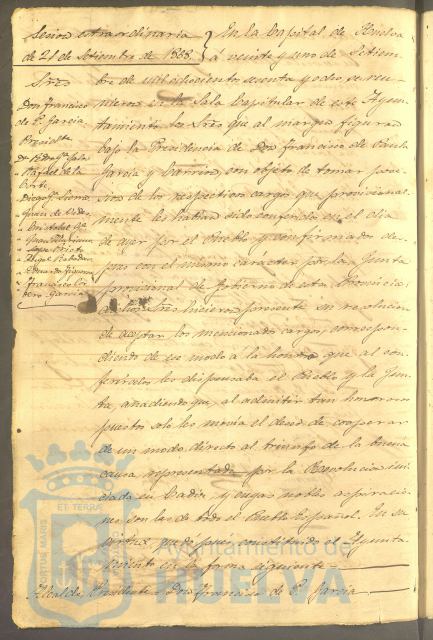 Sesion extraordinaria
de 21 de Setiembre de 1868.
Sres
Don Francisco
de P. Garcia
Presidte
Rafael de la
Corte
Diego Sierra
Juan de
Cristobal Ga
Lopez Prieto
Angel Rabadan
Eduardo Figueroa
Francisco Cor
dero Garcia
En la Capital de Huelva
á veinte y uno de Setiem-
bre de mil ochocientos sesenta y ocho se reu-
nieron en la Sala Capitular de este Ayun-
tamiento los Sres que al margen figuran
bajo la Presidencia de Don Francisco de Paula
Garcia y Barrera, con objeto de tomar pose-
sion de los respectivos cargos que provisional-
mente les habian sido conferidos en el dia
de ayer por el Pueblo y confirmados des-
pues con el mismo caracter por la Junta
provisional de Gobierno de esta Provincia:
dichos Sres hicieron presente su resolucion
de aceptar los mencionados cargos, correspon-
diendo de ese modo a la honra que al con-
ferirselos les dispensaba el Pueblo y la Jun-
ta, añadiendo que al admitir tan honrosos
puestos solo les movia el deseo de cooperar
de un modo directo al triunfo de la buena
causa representada por la Revolucion ini-
ciada en Cadiz y cuyas nobles aspiracio-
nes son las de todo el Pueblo Español. En su
virtud quedó pues constituido el Ayunta-
miento en la forma siguiente
Alcalde Presidente Don Francisco de P. Garcia
ET TERRÆ
PORTUS MARIS
Ayuntamiento de
HUELVA